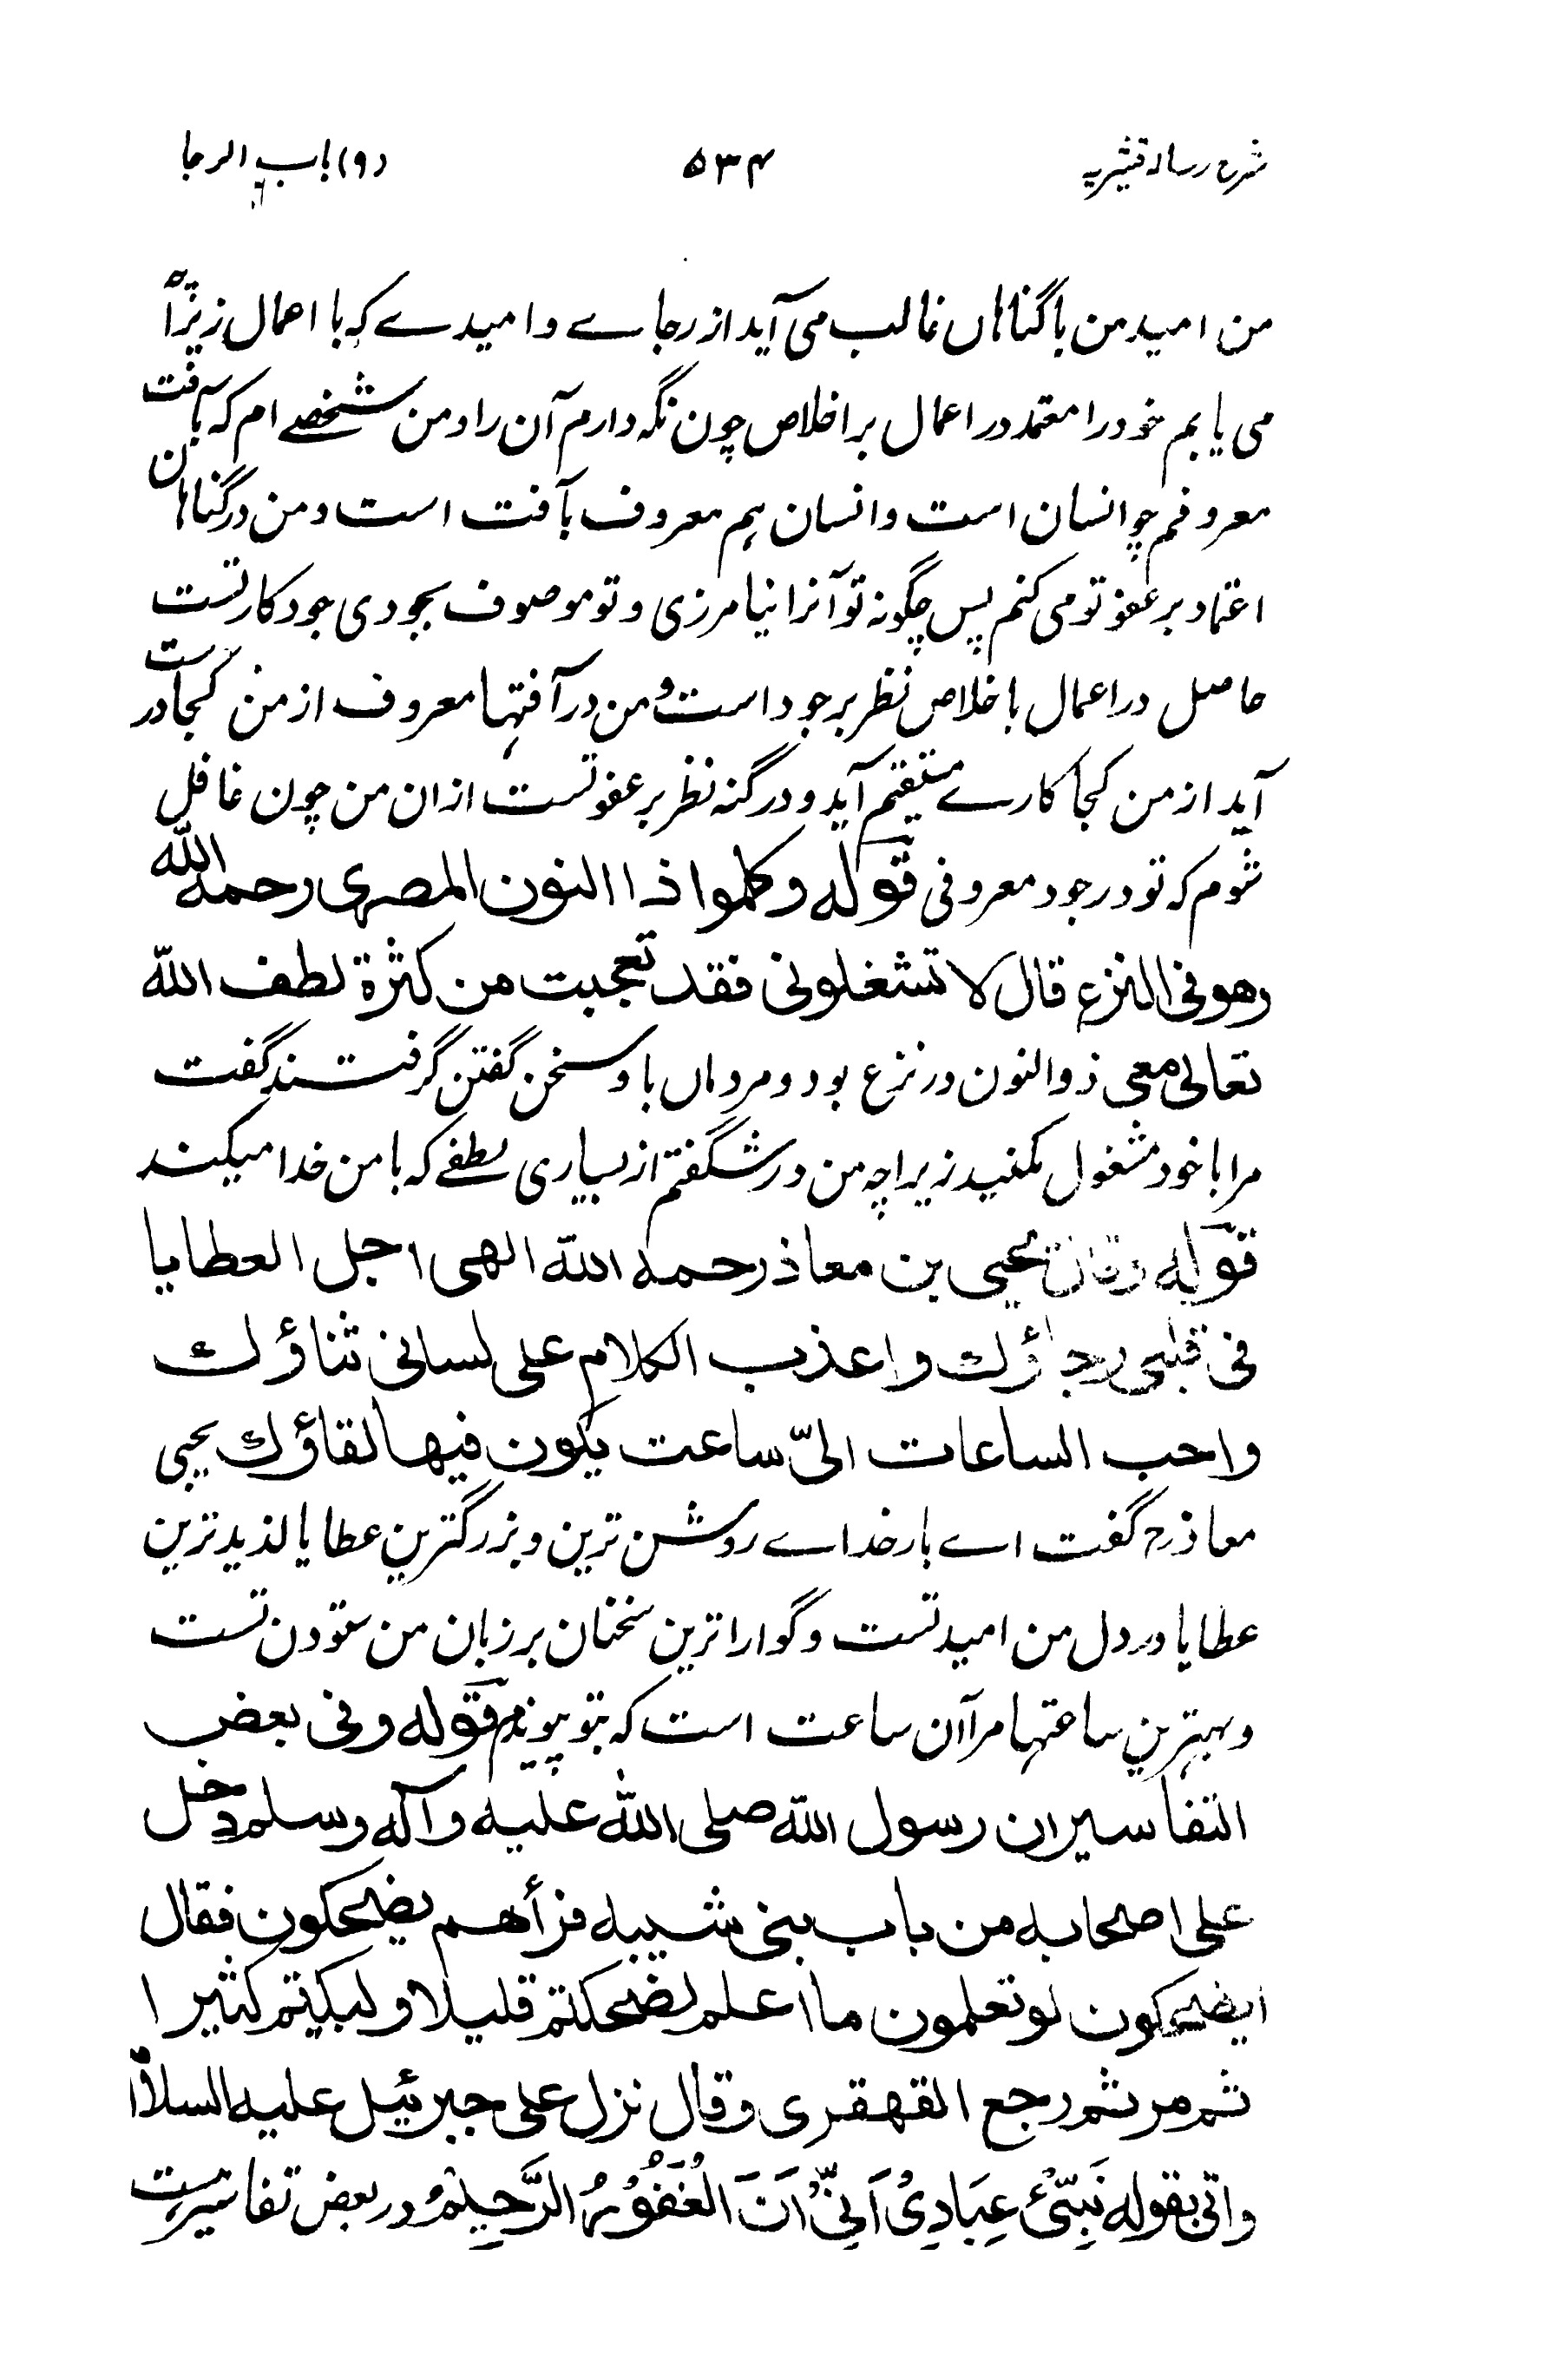 شرح رسالہ قشیریہ ۵۳۴ (۹) باب الرجا
من امید من با گناہاں غالب می آید از رجاے و امیدے کہ با اعمال زیرا
می یابم خود را معتمد در اعمال بر اخلاص چون نگہ دارم آن را و من شخصے ام کہ بآفت
معروفم چو انسان است و انسان ہم معروف بآفت است و من در گناہان
اعتماد بر عفو تو می کنم پس چگونہ تو آنرا نیامرزی و تو موصوف بجودی جود کار تست
حاصل در اعمال باخلاص نظر بر جود است و من در آفتہا معروف از من کجا درست
آید از من کجا کارے مستقیم آید و در گنہ نظر بر عفو تست ازان من چون غافل
شوم کہ تو در جود معروفی قولہ وکلموا ذا النون المصری رحمہ اللہ
وھو فی النزع قال لا تشغلونی فقد تعجبت من کثرۃ لطف اللہ
تعالی معی ذوالنون در نزع بود و مردماں با او سخن گفتن گرفتند گفت
مرا با خود مشغول مکنید زیراچہ من در شگفتم از بسیاری لطفے کہ با من خدا میکند
قولہ وقال یحیی بن معاذ رحمہ اللہ الھی اجل العطایا
فی قلبی رجاؤک واعذب الکلام علی لسانی ثناؤک
واحب الساعات الیّ ساعت یکون فیھا لقاؤک یحیی
معاذ رح گفت اے بار خداے روشن ترین و بزرگترین عطایا لذیذ ترین
عطایا در دل من امید تست و گوارا ترین سخنان بر زبان من ستودن تست
و بہترین ساعتہا مرا آن ساعت است کہ بتو پیوندم قولہ وفی بعض
التفاسیر ان رسول اللہ صلی اللہ علیہ وآلہ وسلم دخل
علی اصحابہ من باب بنی شیبہ فرأھم یضحکون فقال
ایضحکون لو تعلمون ما اعلم لضحکتم قلیلا ولبکیتم کثیرا
ثم مر ثم رجع القھقری وقال نزل علی جبرئیل علیہ السلام
واتی بقولہ نَبِّیْٔ عِبَادِیْ اَنِّیْ اَنَا الْغَفُوْرُ الرَّحِیْمُ در بعض تفاسیرست